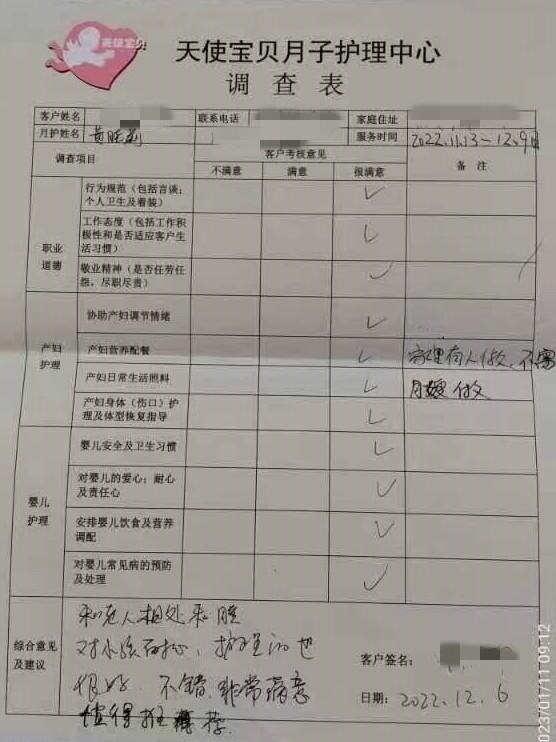 天使宝贝
天使宝贝月子护理中心
调查表
客户姓名 联系电话 家庭住址
月护姓名 服务时间 2022.11.13-12.9日
调查项目 客户考核意见 备注
不满意 满意 很满意
职业道德
行为规范（包括言谈；个人卫生及着装） ✓
工作态度（包括工作积极性和是否适应客户生活习惯） ✓
敬业精神（是否任劳任怨，尽职尽责） ✓
产妇护理
协助产妇调节情绪 ✓
产妇营养配餐 ✓ 家里有人做，不需
产妇日常生活照料 ✓ 月嫂做
产妇身体（伤口）护理及体型恢复指导 ✓
婴儿护理
婴儿安全及卫生习惯 ✓
对婴儿的爱心；耐心及责任心 ✓
安排婴儿饮食及营养调配 ✓
对婴儿常见病的预防及处理 ✓
综合意见及建议
和老人相处和
对小孩耐心，护理的也
很好 不错，非常满意
值得推荐
客户签名：
日期：2022.12.6
2023/01/11 09:12